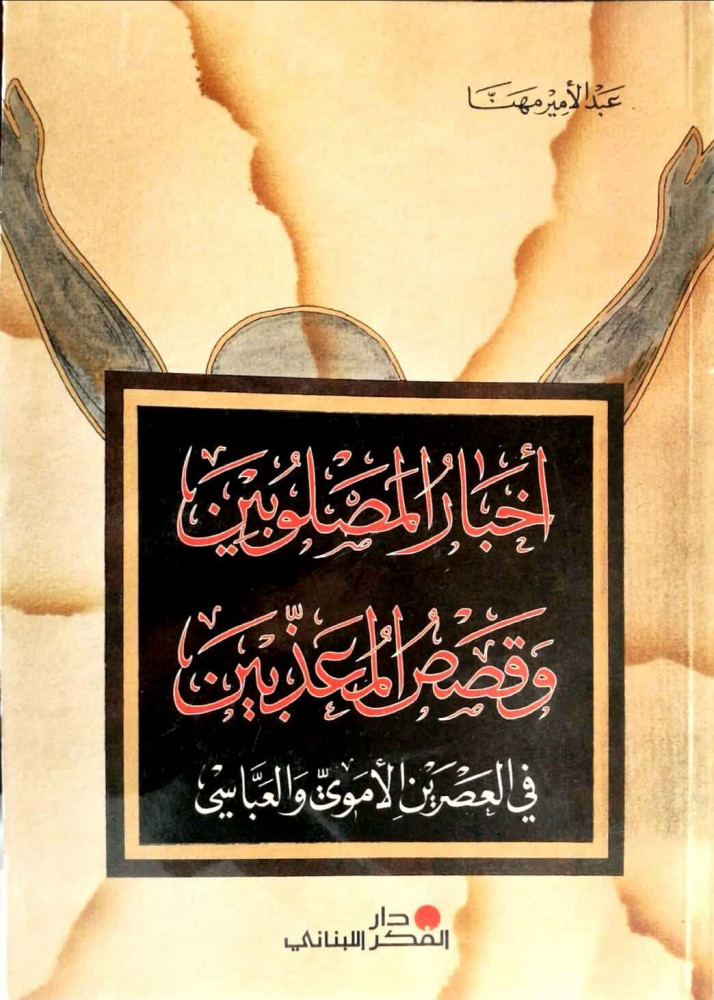 عَبْد الأَمِيْر مهَنَّا
أَخبَارُ المَصَلُوبِيْنَ
وَقَصَصُ المُعَذّبِيْنَ
في العَصْرَيْن الأمَويّ وَالعَبَّاسِي
دار
الفكر اللبناني